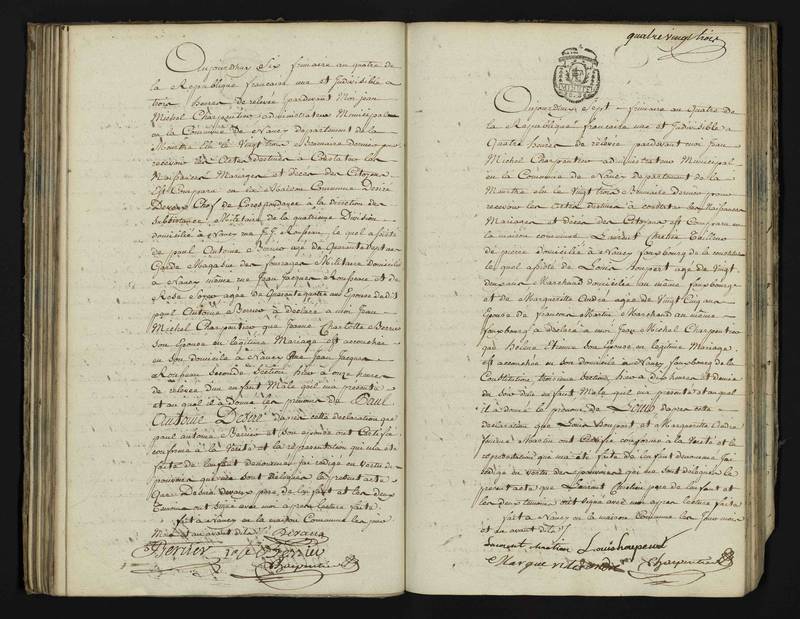 Aujourdhuy Six frimaire an quatre de
la Republique francaise une et Indivisible a
trois heures de relevée pardevant Moi jean
Michel Charpentier administrateur Municipal
en la Commune de Nancy departement de la
Meurthe elu le Vingt trois Brumaire dernier pour
recevoir les Actes destinés a Constater les
Naissances Mariages et deces des Citoyens
Est Comparu en la Maison Commune Désiré
Chef de Corespondance a la direction des
Subsistances Militaires de la quatrieme Division
domicilié a Nancy rue J.J. Rousseau, le quel assisté
de paul Antoine agé de Quarante sept ans
Garde Magasin des fourages Militaire domicilié
a Nancy même rue Jean Jacques Rousseau et de
Rose agée de Quarante quatre ans Epouse dudit
paul Antoine a déclaré a moi Jean
Michel Charpentier que Jeanne Charlotte
son Epouse en légitime Mariage est accouchée
en son domicile a Nancy rue Jean Jacques
Rousseau Seconde Section hier a onze heures
de relevée d'un enfant Male qu'il m'a présenté
et au quel il a donné les prénoms de Paul
Antoine Désiré d'apres cette déclaration que
paul antoine et son épouse ont Certifié
conforme a la Vérité et la représentation qui m'a été
faite de l'enfant denommé j'ai rédigé en vertu des
pouvoirs qui me sont délégués le présent acte
Que pere de l'enfant et les deux
Temoins ont signé avec moi apres lecture faite
fait a Nancy en la maison Commune les jour
Mois et an avant dits
Charpentier
quatre vingt trois
Aujourdhuy Sept frimaire an Quatre de
la Republique francaise une et Indivisible a
Quatre heures de relevée pardevant moi Jean
Michel Charpentier administrateur Municipal
en la Commune de Nancy departement de la
Meurthe elu le Vingt trois Brumaire dernier pour
recevoir les actes destinés a constater les Naissances
Mariages et décès des Citoyens est Comparu en
la maison commune Laurent
de pierre domicilié a Nancy fauxbourg de la
le quel assisté de Louis agé de Vingt
deux ans Marchand domicilié au même fauxbourg
et de Marguerite André agée de Vingt Cinq ans
Epouse de francois Martin Marchand au même
fauxbourg a déclaré a moi Jean Michel Charpentier
que son Epouse en légitime Mariage
est accouchée en son domicile a Nancy fauxbourg de la
Constitution, troisieme Section, hier a dix heures et demie
du soir d'un enfant Male qu'il m'a présenté et auquel
il a donné le prénom de Louis d'apres cette
déclaration que Louis et Marguerite André
femme Martin ont Certifié conforme a la Vérité et la
représentation qui m'a été faite de l'enfant denommé j'ai
rédigé en vertu des pouvoirs qui me sont délégués le
présent acte que Laurent pere de l'enfant et
les deux temoins ont signé avec moi apres lecture faite
fait a Nancy en la maison Commune les jour mois
et an avant dits
Charpentier